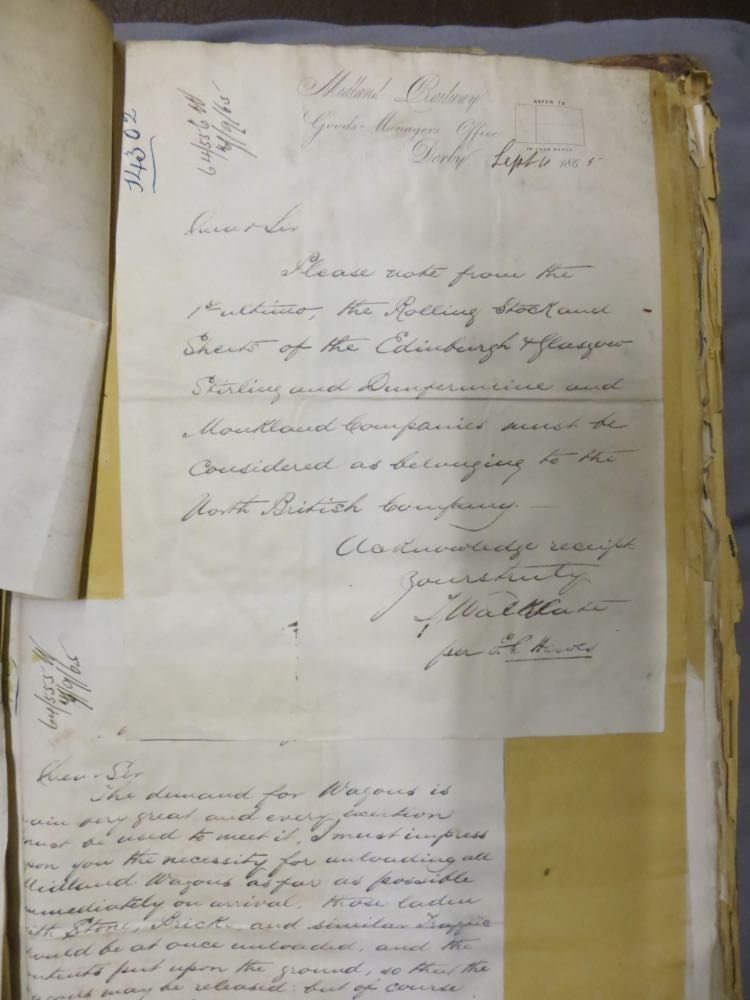 14302
64/556 W
Midland Railway
Goods Managers Office
Derby Sept 6 1865
REFER TO
IN YOUR REPLY
Dear Sir
Please note from the
1st ultimo, the Rolling Stock and
Sheets of the Edinburgh & Glasgow
Stirling and Dunfermline and
Monkland Companies must be
Considered as belonging to the
North British Company.—
Acknowledge receipt
Yours truly
per
64/555 W
Dear Sir
The demand for Wagons is
very great and every exertion
must be used to meet it. I must impress
upon you the necessity for unloading all
Midland Wagons as far as possible
immediately on arrival, those laden
with Stone, Bricks, and similar Traffic
should be at once unloaded, and the
contents put upon the ground, so that the
may be released: but of course